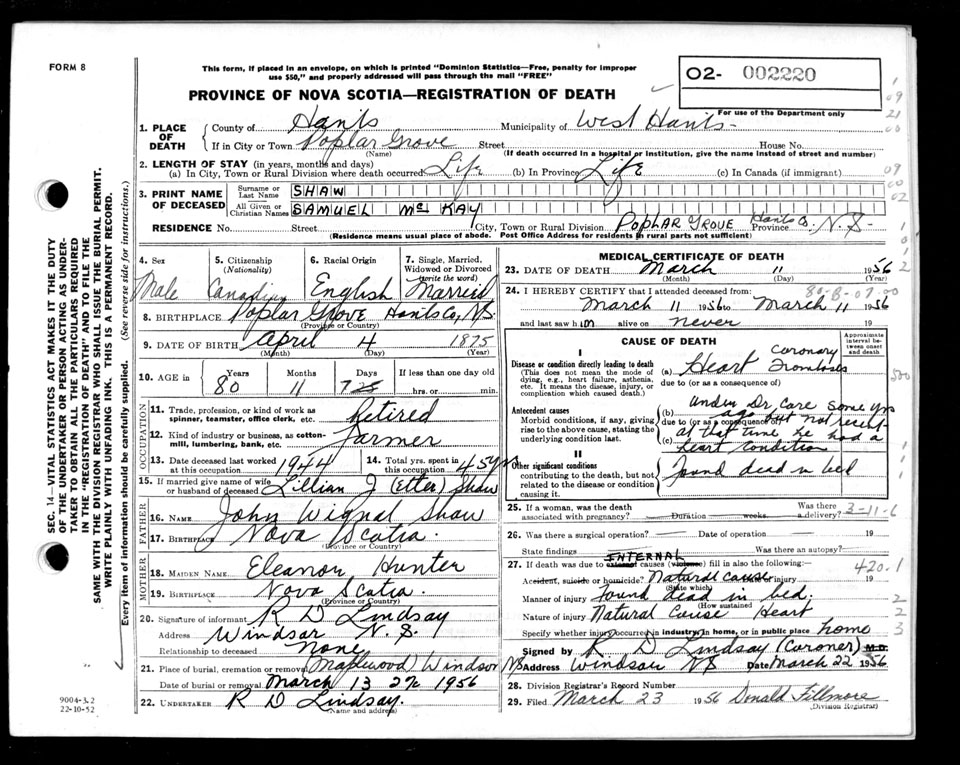 FORM 8
This form, if placed in an envelope, on which is printed "Dominion Statistics—Free, penalty for improper
use $50," and properly addressed will pass through the mail "FREE"
02- 002220
For use of the Department only
PROVINCE OF NOVA SCOTIA—REGISTRATION OF DEATH
SEC. 14—VITAL STATISTICS ACT MAKES IT THE DUTY
OF THE UNDERTAKER OR PERSON ACTING AS UNDER-
TAKER TO OBTAIN ALL THE PARTICULARS REQUIRED
IN THE "REGISTRATION OF DEATH" AND TO FILE THE
SAME WITH THE DIVISION REGISTRAR WHO SHALL ISSUE THE BURIAL PERMIT.
WRITE PLAINLY WITH UNFADING INK. THIS IS A PERMANENT RECORD.
Every item of information should be carefully supplied. (See reverse side for instructions.)
1. PLACE OF DEATH
County of Hants Municipality of West Hants
If in City or Town Poplar Grove Street House No.
(Name) (If death occurred in a hospital or institution, give the name instead of street and number)
2. LENGTH OF STAY (in years, months and days)
(a) In City, Town or Rural Division where death occurred Life (b) In Province Life (c) In Canada (if immigrant)
3. PRINT NAME OF DECEASED
Surname or Last Name SHAW
All Given or Christian Names SAMUEL Mc KAY
RESIDENCE No. Street City, Town or Rural Division POPLAR GROVE Hants Co. Province N.S.
(Residence means usual place of abode. Post Office Address for residents in rural parts not sufficient)
4. Sex Male
5. Citizenship (Nationality) Canadian
6. Racial Origin English
7. Single, Married, Widowed or Divorced (Write the word) Married
8. BIRTHPLACE Poplar Grove Hants Co, N.S.
(Province or Country)
9. DATE OF BIRTH April 4 1875
(Month) (Day) (Year)
10. AGE in Years 80 Months 11 Days 7 If less than one day old hrs. or min.
OCCUPATION
11. Trade, profession, or kind of work as spinner, teamster, office clerk, etc. Retired
12. Kind of industry or business, as cotton-mill, lumbering, bank, etc. Farmer
13. Date deceased last worked at this occupation 1944
14. Total yrs. spent in this occupation 45 yrs
15. If married give name of wife or husband of deceased Lillian J (Etter) Shaw
FATHER
16. NAME John Wignal Shaw
17. BIRTHPLACE Nova Scotia
(Province or Country)
MOTHER
18. MAIDEN NAME Eleanor Hunter
19. BIRTHPLACE Nova Scotia
(Province or Country)
20. Signature of informant R D Lindsay
Address Windsor N.S.
Relationship to deceased None
21. Place of burial, cremation or removal Maplewood Windsor NS
Date of burial or removal March 13 1956
22. UNDERTAKER R D Lindsay
(Name and address)
9004-3.2
22-10-52
MEDICAL CERTIFICATE OF DEATH
23. DATE OF DEATH March 11 1956
(Month) (Day) (Year)
24. I HEREBY CERTIFY that I attended deceased from:
March 11 1956 to March 11 1956
and last saw him alive on never 19
CAUSE OF DEATH
Approximate interval between onset and death
I
Disease or condition directly leading to death
(This does not mean the mode of dying, e.g., heart failure, asthenia, etc. It means the disease, injury, or complication which caused death.)
(a) Heart Coronary
due to (or as a consequence of)
Antecedent causes
Morbid conditions, if any, giving rise to the above cause, stating the underlying condition last.
(b) Under Dr. Care some yrs
ago but not recent-
due to (or as a consequence of)
(c) at that time he had a
heart condition
II
Other significant conditions
contributing to the death, but not related to the disease or condition causing it.
Found dead in bed
25. If a woman, was the death associated with pregnancy? Duration weeks. Was there a delivery? 3-11-6
26. Was there a surgical operation? Date of operation 19
State findings Was there an autopsy?
27. If death was due to external INTERNAL causes (violence) fill in also the following: 420.1
Accident, suicide or homicide? Natural Cause injury 19
(State which)
Manner of injury Found dead in bed.
(How sustained)
Nature of injury Natural Cause Heart
Specify whether injury occurred in industry, in home, or in public place home
Signed by R D Lindsay (Coroner) M.D.
Address Windsor NS Date March 22 1956
28. Division Registrar's Record Number
29. Filed March 23 1956 Donald Fillmore
(Division Registrar)